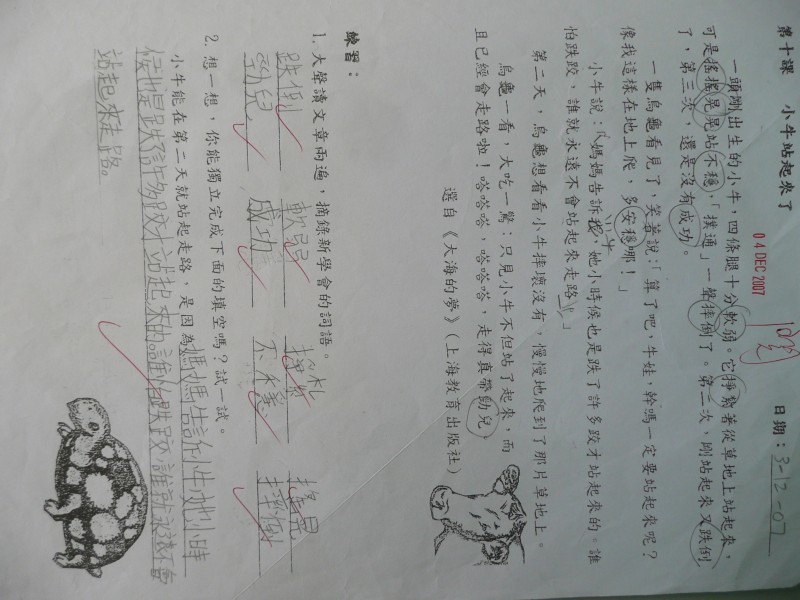 第十課　小牛站起來了
日期：3-12-07
04 DEC 2007
一頭剛出生的小牛，四條腿十分軟弱。它掙扎着從草地上站起來，
可是搖搖晃晃站不穩，「撲通」一聲摔倒了。第二次，剛站起來又跌倒
了，第三次，還是沒有成功。
一隻烏龜看見了，笑着說：「算了吧，牛娃，幹嗎一定要站起來呢？
像我這樣在地上爬，多安穩哪！」
小牛說：「媽媽告訴我，她小時候也是跌了許多跤才站起來的。誰
怕跌跤，誰就永遠不會站起來走路。」
第二天，烏龜想看看小牛摔壞沒有，慢慢地爬到了那片草地上。
烏龜一看，大吃一驚：只見小牛不但站了起來，而
且已經會走路啦！嗒嗒嗒，嗒嗒嗒，走得真帶勁兒。
選自《大海的夢》（上海教育出版社）
練習：
1. 大聲讀文章兩遍，摘錄新學會的詞語。
跌倒　軟弱　掙扎　搖晃
勁兒　成功　不穩　摔倒
2. 想一想，你能獨立完成下面的填空嗎？試一試。
小牛能在第二天就站起走路，是因為媽媽告訴小牛她小時
候也是跌許多跤才站起來的誰怕跌跤誰就永遠不會
站起來走路。